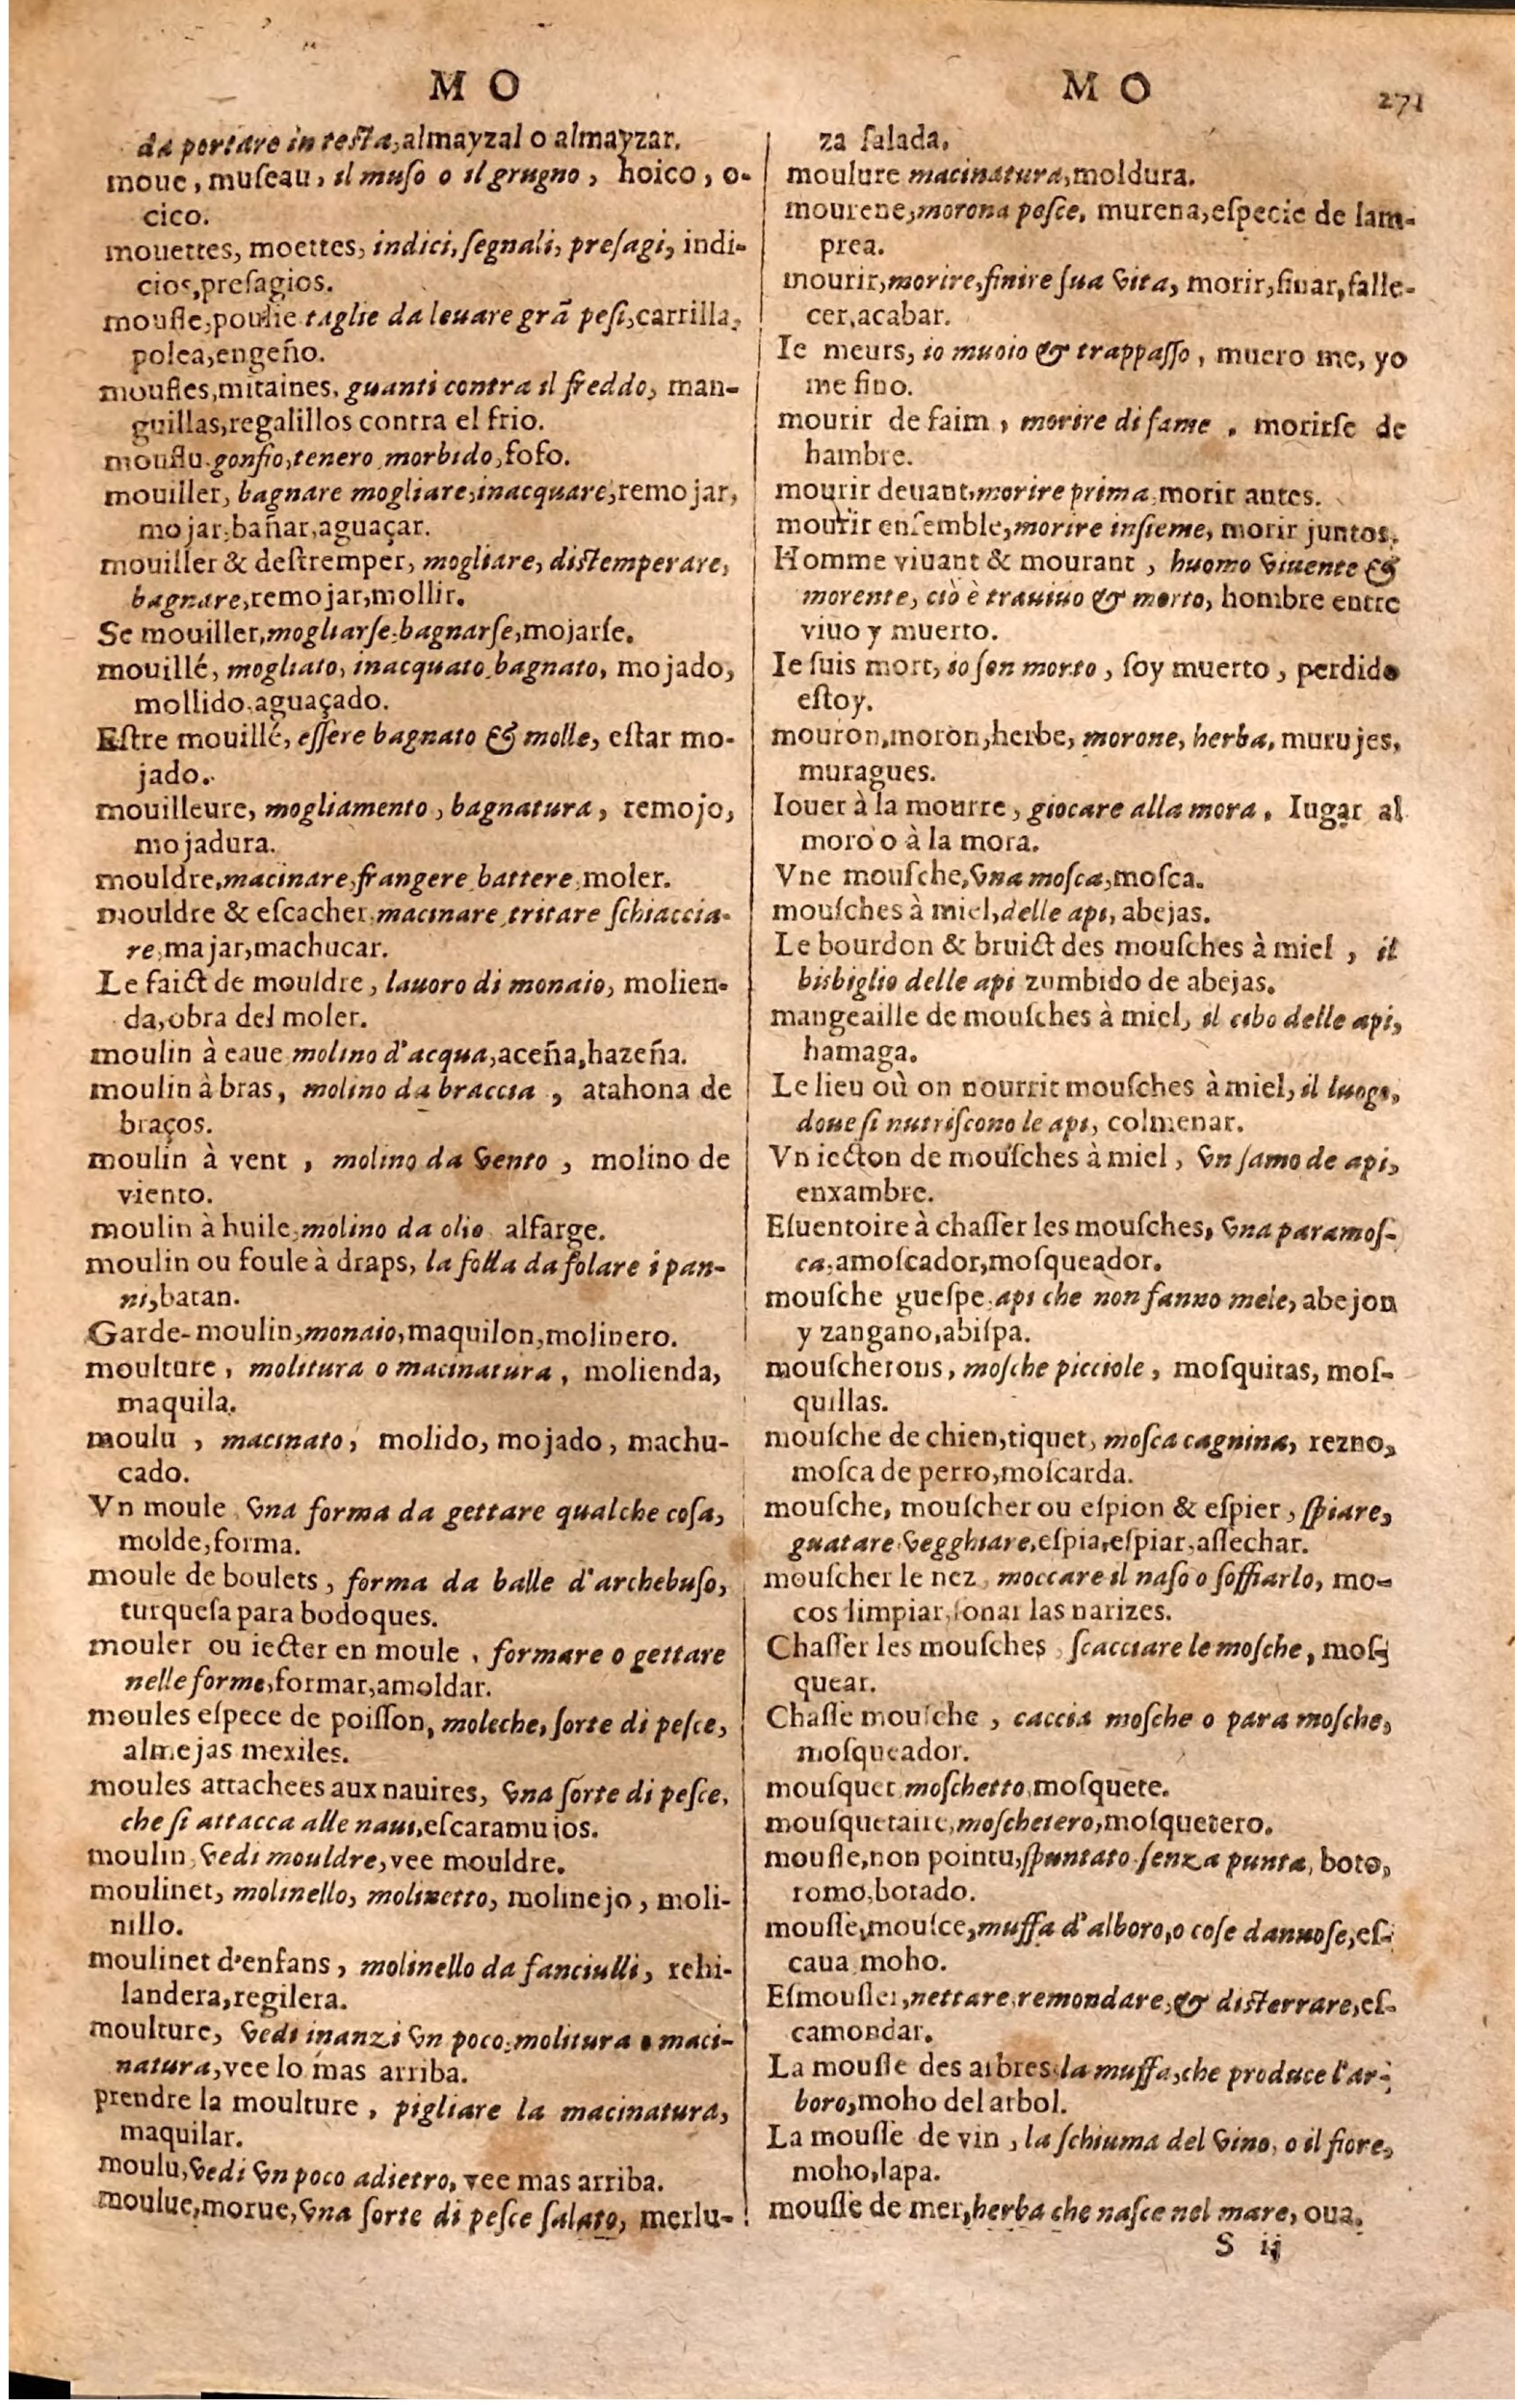 M O
da portare in testa, almayzal o almayzar.
moue, museau, il muso o il grugno, hoico, o-
cico.
mouettes, moettes, indici, segnali, presagi, indi-
cios, presagios.
moufle, poulie taglie da leuare grã pesi, carrilla,
polea, engeño.
moufles, mitaines, guanti contra il freddo, man-
guillas, regalillos contra el frio.
mouflu. gonfio, tenero, morbido, fofo.
mouiller, bagnare mogliare, inacquare, remojar,
mojar, bañar, aguaçar.
mouiller & destremper, mogliare, distemperare,
bagnare, remojar, mollir.
Se mouiller, mogliarse, bagnarse, mojarse.
mouillé, mogliato, inacquato, bagnato, mojado,
mollido, aguaçado.
Estre mouillé, essere bagnato & molle, estar mo-
jado.
mouilleure, mogliamento, bagnatura, remojo,
mojadura.
mouldre, macinare, frangere, battere, moler.
mouldre & escacher, macinare, tritare schiaccia-
re, majar, machucar.
Le faict de mouldre, lauoro di monaio, molien-
da, obra del moler.
moulin à eaue, molino d'acqua, aceña, hazeña.
moulin à bras, molino da braccia, atahona de
braços.
moulin à vent, molino da vento, molino de
viento.
moulin à huile, molino da olio, alfarge.
moulin ou foule à draps, la folla da folare i pan-
ni, batan.
Garde-moulin, monaio, maquilon, molinero.
moulture, molitura o macinatura, molienda,
maquila.
moulu, macinato, molido, mojado, machu-
cado.
Vn moule, vna forma da gettare qualche cosa,
molde, forma.
moule de boulets, forma da balle d'archebuso,
turquesa para bodoques.
mouler ou iecter en moule, formare o gettare
nelle forme, formar, amoldar.
moules espece de poisson, moleche, sorte di pesce,
almejas mexiles.
moules attachees aux nauires, vna sorte di pesce,
che si attacca alle naui, escaramuios.
moulin, vedi mouldre, vee mouldre.
moulinet, molinello, molinetto, molinejo, moli-
nillo.
moulinet d'enfans, molinello da fanciulli, rehi-
landera, regilera.
moulture, vedi inanzi vn poco, molitura o maci-
natura, vee lo mas arriba.
prendre la moulture, pigliare la macinatura,
maquilar.
moulu, vedi vn poco adietro, vee mas arriba.
moulue, morue, vna sorte di pesce salato, merlu-
M O
271
za salada.
moulure macinatura, moldura.
mourene, morona pesce, murena, especie de lam-
prea.
mourir, morire, finire sua vita, morir, finar, falle-
cer, acabar.
Ie meurs, io muoio & trappasso, muero me, yo
me fino.
mourir de faim, morire di fame, morirse de
hambre.
mourir deuant, morire prima, morir antes.
mourir ensemble, morire insieme, morir juntos.
Homme viuant & mourant, huomo viuente &
morente, ciò è tra viuo & morto, hombre entre
viuo y muerto.
Ie suis mort, io son morto, soy muerto, perdido
estoy.
mouron, moron, herbe, morone, herba, murujes,
muragues.
Iouer à la mourre, giocare alla mora, Iugar al
moro o à la mora.
Vne mousche, vna mosca, mosca.
mousches à miel, delle api, abejas.
Le bourdon & bruict des mousches à miel, il
bisbiglio delle api zumbido de abejas.
mangeaille de mousches à miel, il cibo delle api,
hamaga.
Le lieu où on nourrit mousches à miel, il luogo,
doue si nutriscono le api, colmenar.
Vn iecton de mousches à miel, vn samo de api,
enxambre.
Esuentoire à chasser les mousches, vna paramos-
ca, amoscador, mosqueador.
mousche guespe, api che non fanno mele, abejon
y zangano, abispa.
mouscherons, mosche picciole, mosquitas, mos-
quillas.
mousche de chien, tiquet, mosca cagnina, rezno,
mosca de perro, moscarda.
mousche, mouscher ou espion & espier, spiare,
guatare vegghiare, espia, espiar, assechar.
mouscher le nez, moccare il naso o soffiarlo, mo-
cos limpiar, sonar las narizes.
Chasser les mousches, scacciare le mosche, mos-
quear.
Chasse mousche, caccia mosche o para mosche,
mosqueador.
mousquet moschetto, mosquete.
mousquetaire, moschetero, mosquetero.
mousse, non pointu, spuntato senza punta, boto,
romo, botado.
mousse, mousce, muffa d'alboro, o cose dannose, es-
caua moho.
Esmousser, nettare, remondare, & disterrare, es-
camondar.
La mousse des arbres la muffa, che produce l'ar-
boro, moho del arbol.
La mousse de vin, la schiuma del vino, o il fiore,
moho, lapa.
mousse de mer, herba che nasce nel mare, oua.
S ij